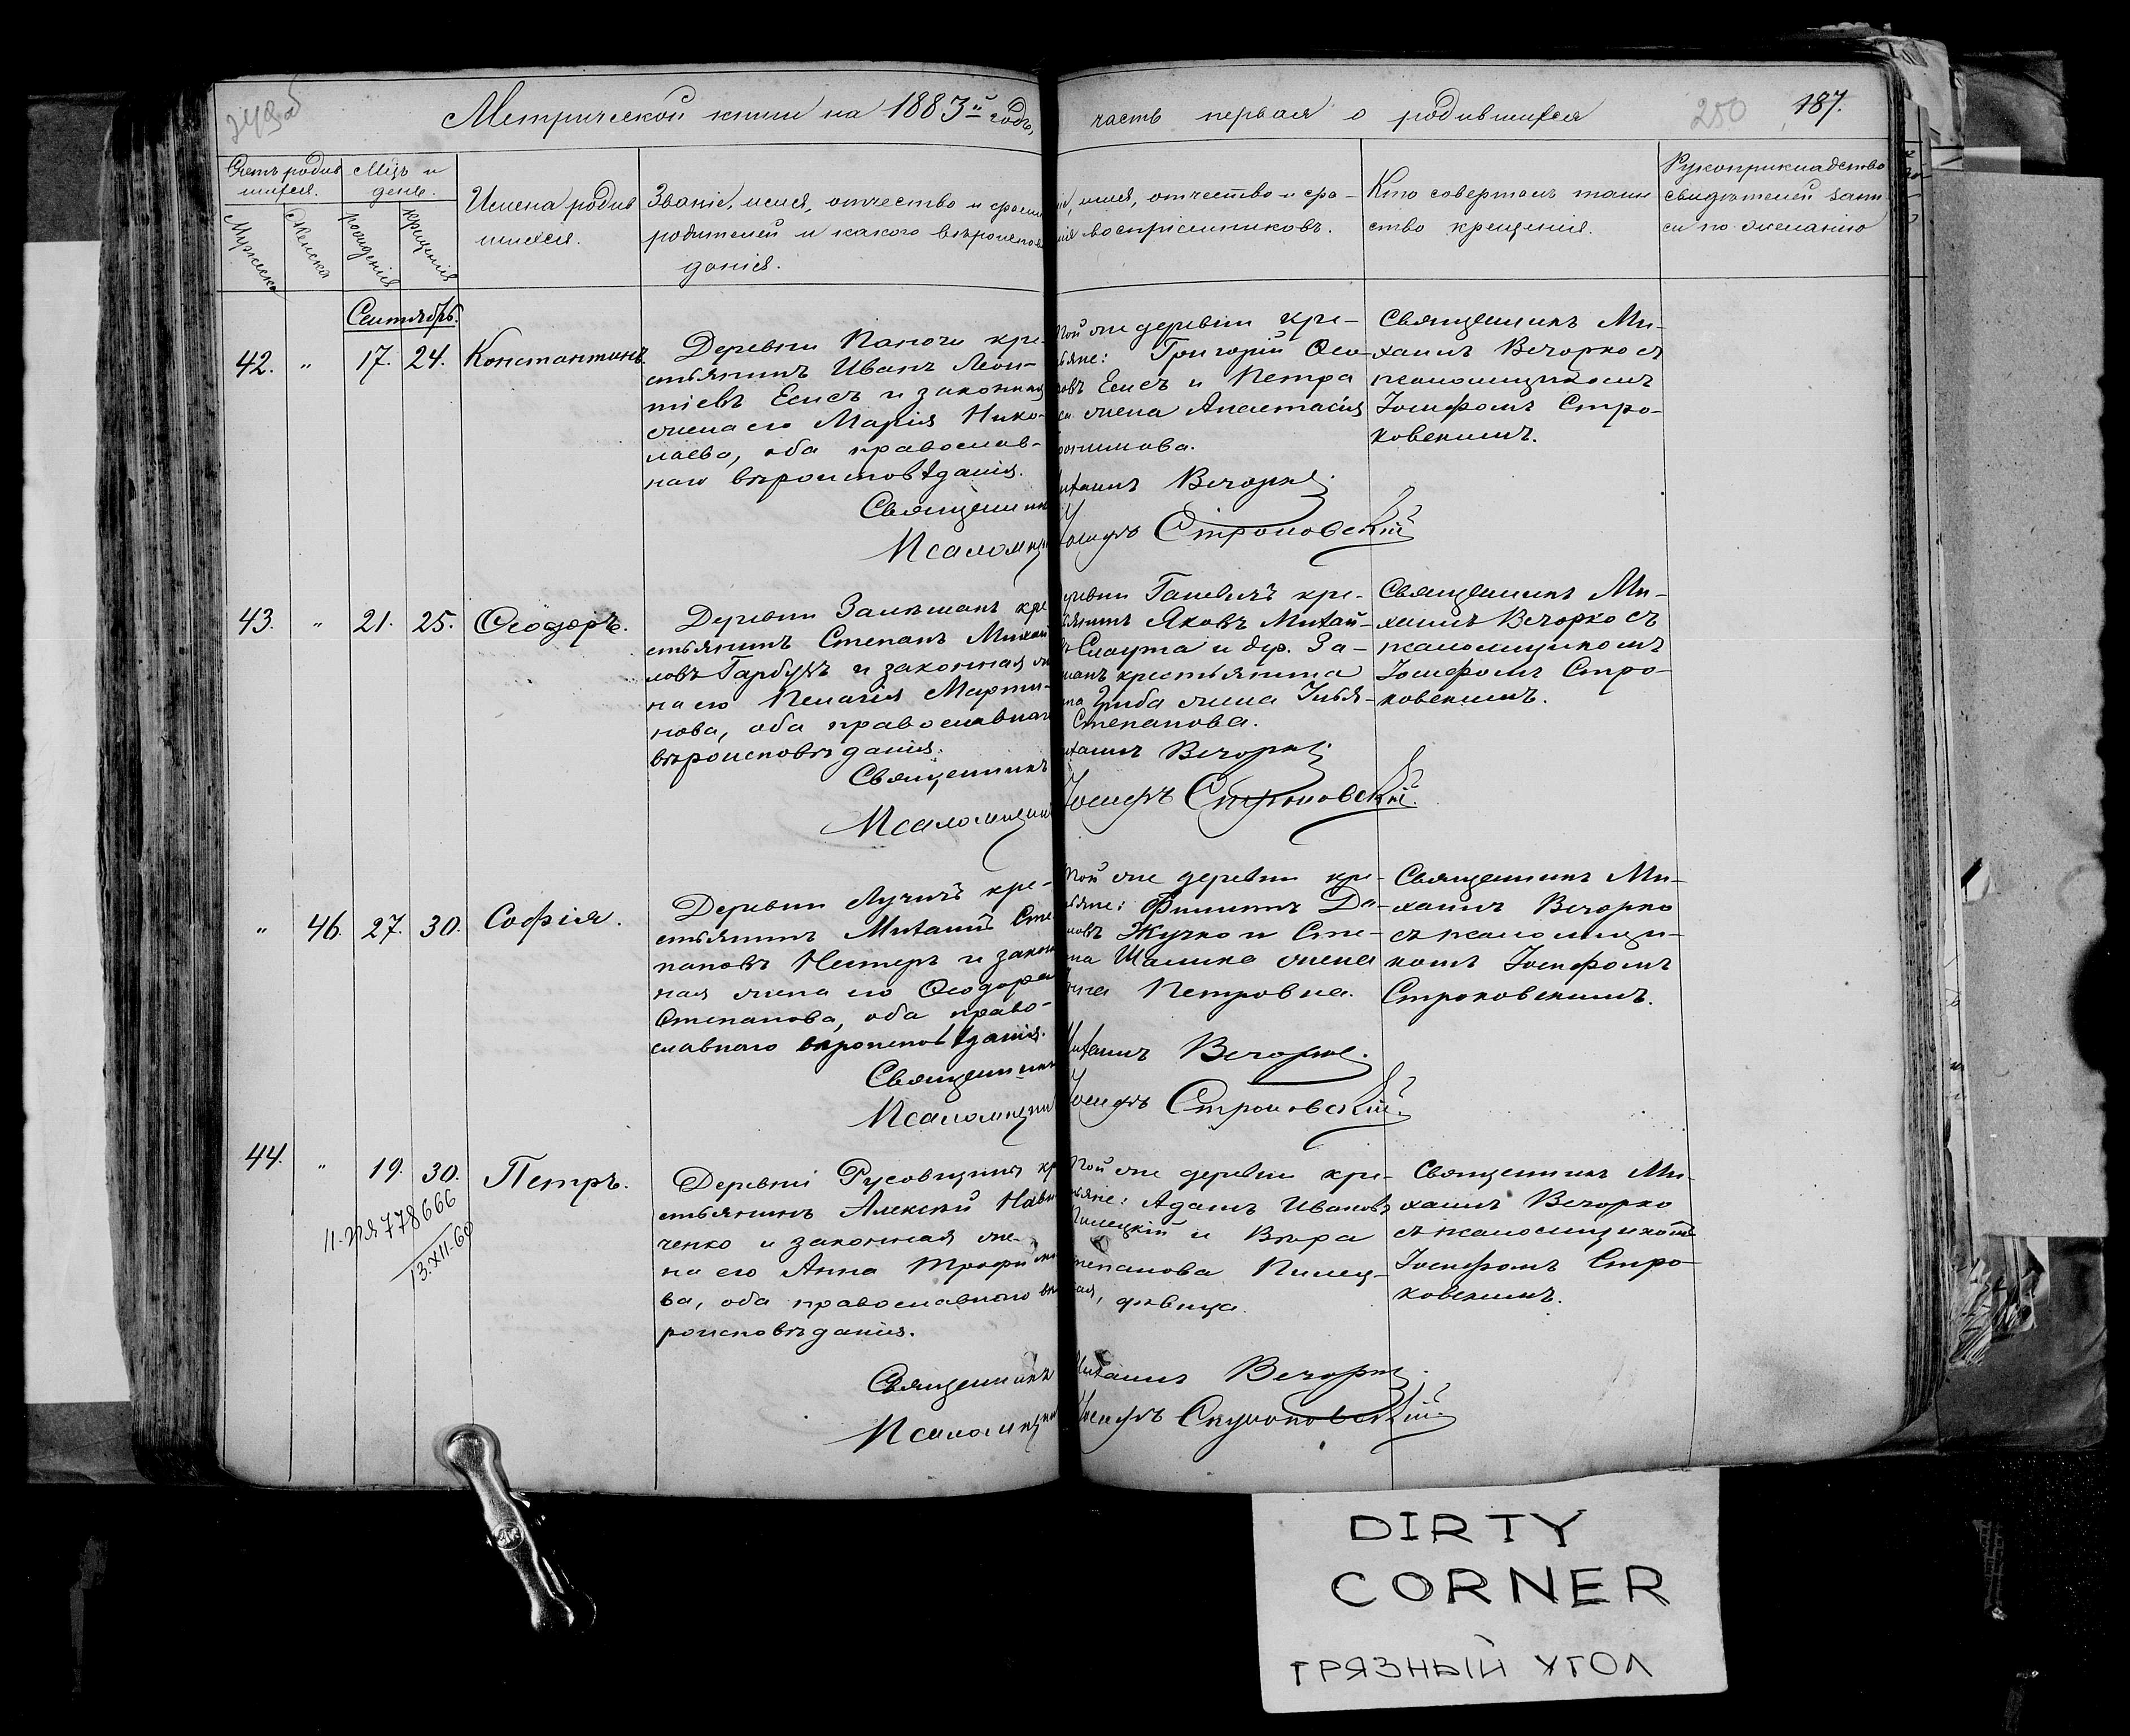 Метрической книги на 1883й годъ,
часть первая о родившихся
250
187.
Счетъ родив
шихся.
Мужеска
Женска
Мцъ и
день.
рожденія
крещенія
Имена родив
шихся.
Званіе, имя, отчество и фами
родителей и какого вѣроиспов
данія.
имя, отчество и фа-
воспріемниковъ.
Кто совершалъ таин
ство крещенія.
Рукоприкладство
свидѣтелей запи
си по желанію
Сентябрь.
42. " 17. 24. Константинъ
Деревни Паночи кре-
стьянинъ Иванъ Леон-
тіевъ Емесъ и законная
жена его Марія Нико-
лаева, оба православ-
наго вѣроисповѣданія.
Священник
Псаломщи
той же деревни кре-
яне: Григорій Осо-
овъ Емесъ и Петра
жена Анастасія
Михаилъ Вечорко.
Іосифъ Строковскій
Священникъ Ми-
хаилъ Вечорко съ
псаломщикомъ
Іосифомъ Стро-
ковскимъ.
43. " 21. 25. Ѳеодоръ.
Деревни Замѣшанъ кре
стьянинъ Степанъ Михай
ловъ Гарбузъ и законная же
на его Пелагія Марти-
нова, оба православнаго
вѣроисповѣданія.
Священникъ
Псаломщик
кре-
Яковъ Михай-
и дер. За-
крестьянина
жена Улья-
Степанова.
Михаилъ Вечорко.
Іосифъ Строковскій.
Священникъ Ми-
хаилъ Вечорко съ
псаломщикомъ
Іосифомъ Стро-
ковскимъ.
" 46. 27. 30. Софія.
Деревни Лучичъ кре-
стьянинъ Михаилъ Сте
пановъ Нестеръ и закон
ная жена его Ѳеодора
Степанова, оба право-
славнаго вѣроисповѣданія.
Священник
Псаломщик
той же деревни кре-
яне: Филиппъ Да-
Жучко и Сте-
жена
Петровна.
Михаилъ Вечорко.
Іосифъ Строковскій.
Священникъ Ми-
хаилъ Вечорко
съ псаломщи-
комъ Іосифомъ
Строковскимъ.
44. " 19. 30. Петръ.
778666
13.XII-60
Деревни Русовщины кр
стьянинъ Алексѣй
и законная же-
на его Анна Трофимо
ва, оба православнаго вѣ
роисповѣданія.
Священникъ
Псаломщик
той же деревни кре-
яне: Адамъ Ивановъ
Пилецкій и Вѣра
Степанова Пилец-
кая, дѣвица.
Михаилъ Вечорко.
Іосифъ Строковскій.
Священникъ Ми-
хаилъ Вечорко
съ псаломщикомъ
Іосифомъ Стро-
ковскимъ.
DIRTY
CORNER
ГРЯЗНЫЙ УГОЛ